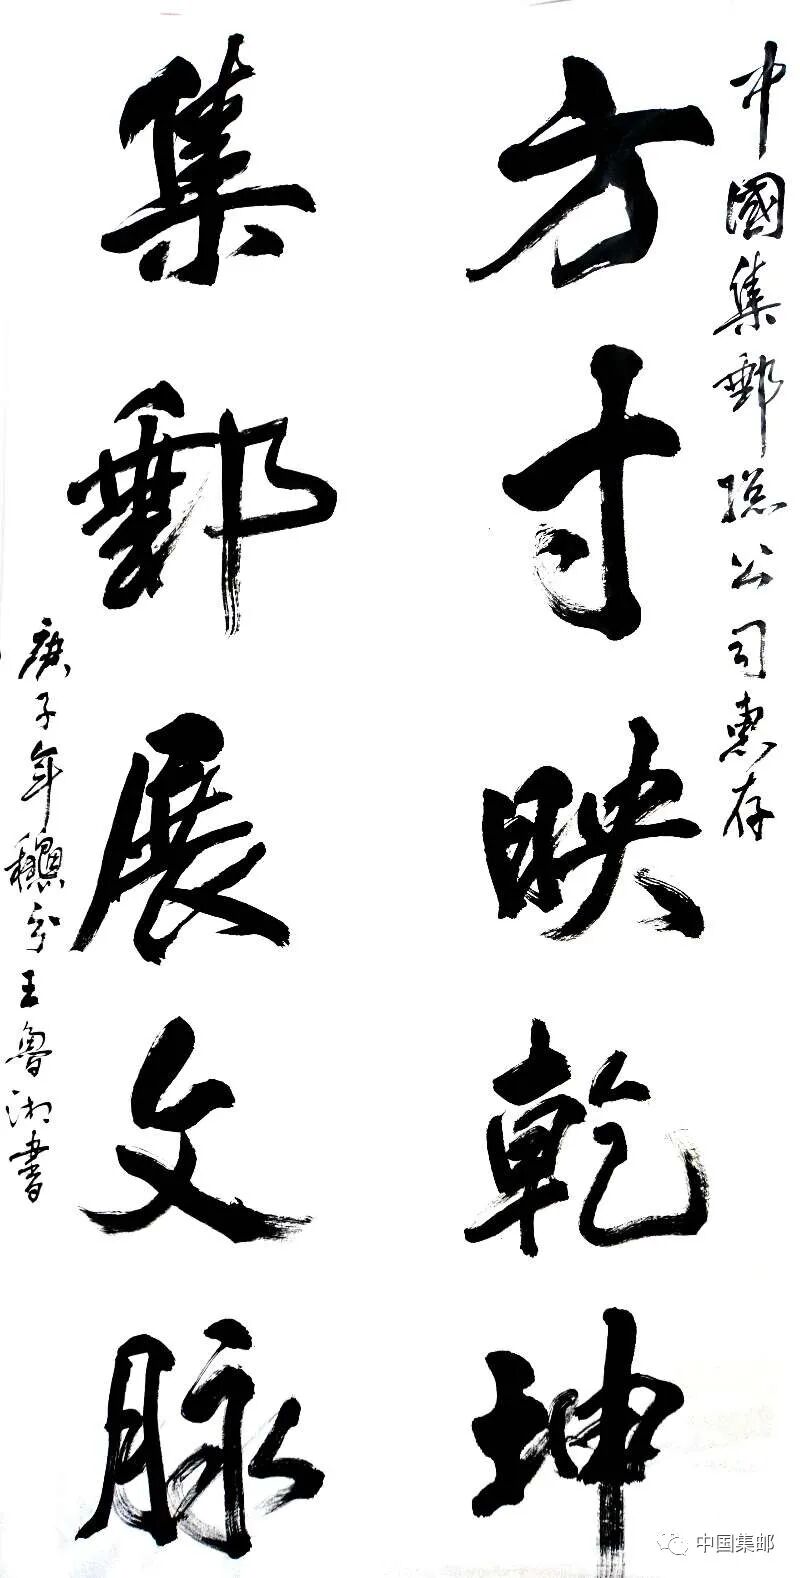 中國集郵總公司惠存
方寸映乾坤
集郵展文脉
庚子年穗分王魯湘書
中国集邮